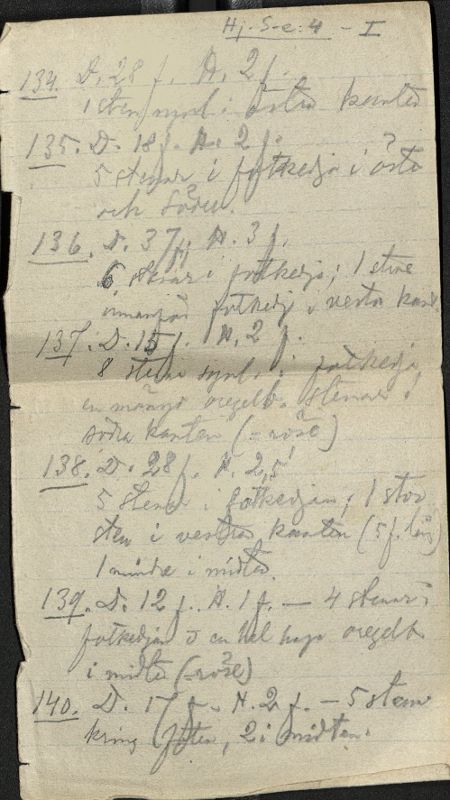 Hj. S-e: 4 - I
134. D. 28 f. H. 2 f.
1 sten synl. i östra kanten
135. D. 18 f. H. 2 f.
5 stenar i fotkedja i östra
och södra.
136. D. 37 f. H. 3 f.
6 stenar i fotkedja; 1 sten
innanför fotkedj. i vestra kant.
137. D. 15 f. H. 2 f.
8 stenar synl. i fotkedja,
en mängd oregelb. stenar i
södra kanten (= röse)
138. D. 28 f. H. 2,5'
5 stenar i fotkedjan; 1 stor
sten i vestra kanten (5 f. lång)
1 mindre i midten.
139. D. 12 f. H. 1 f. — 4 stenar i
fotkedjan o en hel hop oregelb.
i midten (= röse)
140. D. 17 f. H. 2 f. — 5 stenar
kring foten, 2 i midten.